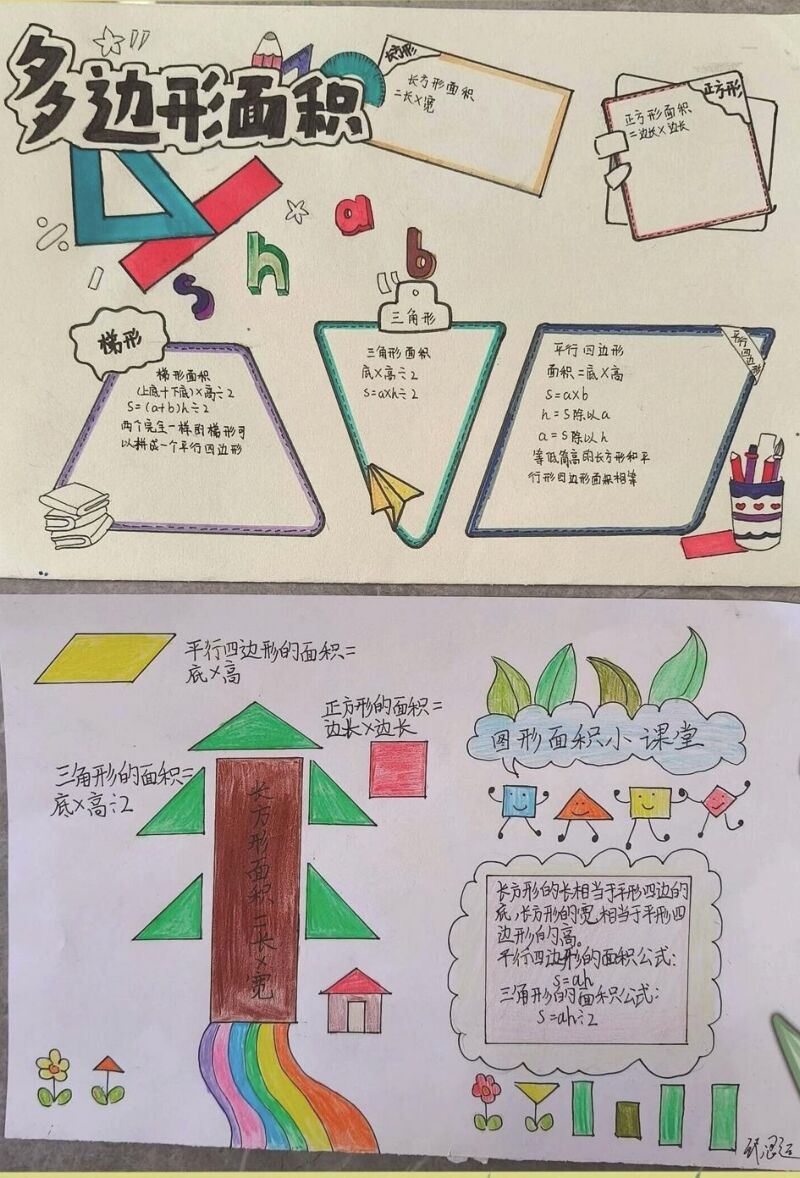 多边形面积
长方形
长方形面积
=长×宽
正方形
正方形面积
=边长×边长
s
h
a
b
梯形
梯形面积
(上底+下底)×高÷2
S=(a+b)h÷2
两个完全一样的梯形可
以拼成一个平行四边形
三角形
三角形面积
底×高÷2
S=a×h÷2
平行四边形
平行四边形
面积=底×高
S=a×b
h=S除以a
a=S除以h
等低角高的长方形和平
行形四边形面积相等
平行四边形的面积=
底×高
正方形的面积=
边长×边长
三角形的面积=
底×高÷2
长方形面积=长×宽
图形面积小课堂
长方形的长相当于平形四边的
底,长方形的宽相当于平形四
边形的高。
平行四边形的面积公式:
S=ah
三角形的面积公式:
S=ah÷2